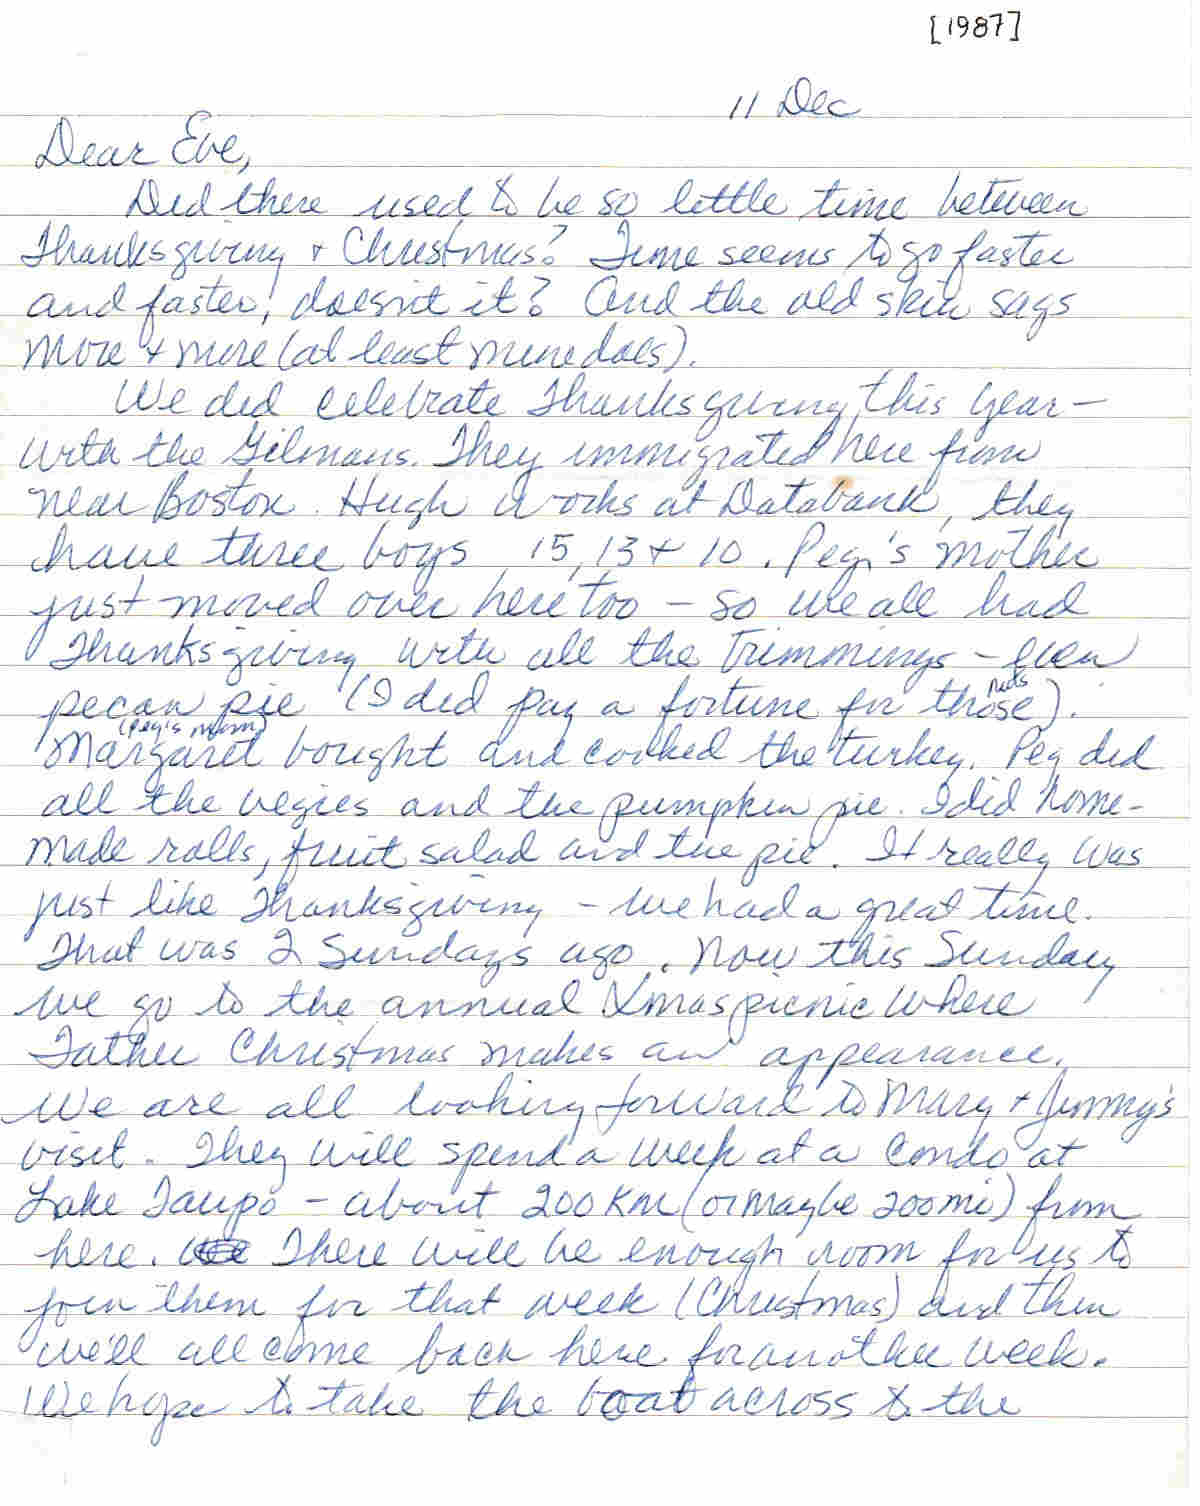 [1987]
11 Dec
Dear Eve,
Did there used to be so little time between
Thanksgiving + Christmas? Time seems to go faster
and faster, doesn't it? And the old skin sags
more + more (at least mine does).
We did celebrate Thanksgiving this year -
with the Gilmans. They immigrated here from
near Boston. Hugh works at Databank, they
have three boys 15, 13 + 10. Peg's mother
just moved over here too - so we all had
Thanksgiving with all the trimmings - even
pecan pie (I did pay a fortune for those nuts).
Margaret (Peg's mom) bought and cooked the turkey. Peg did
all the vegies and the pumpkin pie. I did home-
made rolls, fruit salad and the pie. It really was
just like Thanksgiving - we had a great time.
That was 2 Sundays ago. Now this Sunday
we go to the annual Xmas picnic where
Father Christmas makes an appearance.
We are all looking forward to Mary + Jimmy's
visit. They will spend a week at a condo at
Lake Taupo - about 200 km (or maybe 200 mi) from
here. There will be enough room for us to
join them for that week (Christmas) and then
we'll all come back here for another week.
We hope to take the boat across to the